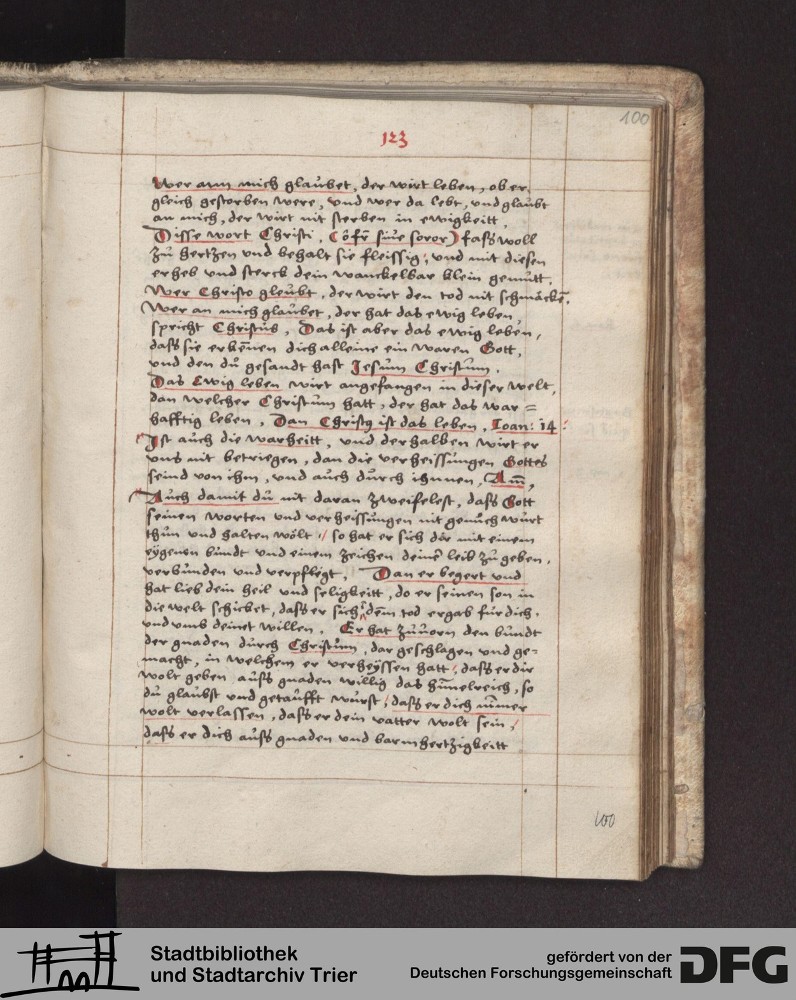 100
123
Wer ann mich glaubet, der wirt leben, ob er
gleich gestorben were, und wer da lebt, und glaubt
an mich, der wirt nit sterben in ewigkeitt.
Disse wort Christi, (ô fr̄ siue soror) fass woll
zu hertzen und behalt sie fleissig, und mit diesen
erheb und sterck dein wanckelbar klein gemutt.
Wer Christo gleubt, der wirt den tod nit schmäcken̄.
Wer an mich glaubet, der hat das ewig leben,
spricht Christus, Das ist aber das ewig leben,
dass sie erken̄en dich alleine ein waren Gott,
und den du gesandt hast Jesum Christum.
Das Ewig leben wirt angefangen in dieser welt,
dan welcher Christum hatt, der hat das war=
hafftig leben, Dan Christus ist das leben, Ioan: 14:
Ist auch die warheitt, und derhalben wirt er
uns nit betriegen, dan die verheissungen Gottes
seind von ihm, und auch durch ihnnen, Am̄,
Auch damit du nit daran zweifelest, dass Gott
seinen worten und verheissungen nit genuch wurt
thun und halten wölt, so hat er sich dir mit einem
eÿgenen bundt und einem zeichen deiner leib zu geben,
verbunden und verpflegt, Dan er begert und
hat lieb dein heil und seligkeitt, do er seinen son in
die welt schicket, dass er sich dem tod ergab für dich,
und umb deinet willen. Er hat zuuorn den bundt
der gnaden durch Christum, dar geschlagen und ge=
macht, in welchem er verheÿssen hatt, dass er dir
wolt geben auss gnaden willig das him̄elreich, so
du glaubst und getaufft wurst, dass er dich im̄er
wolt verlassen, dass er dein vatter wolt sein,
dass er dich auss gnaden und barmhertzigkeitt
100
Stadtbibliothek
und Stadtarchiv Trier
gefördert von der
Deutschen Forschungsgemeinschaft
DFG